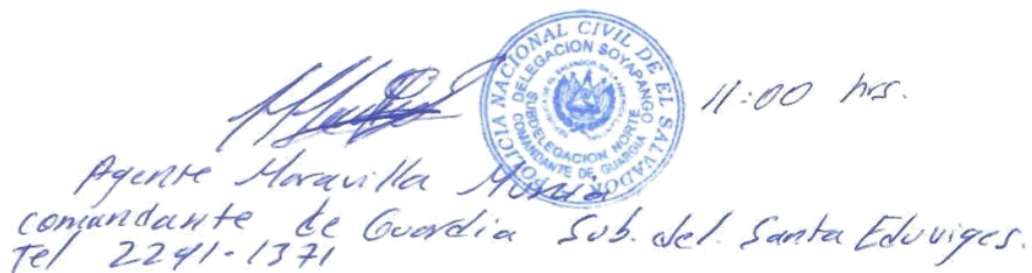 POLICIA NACIONAL CIVIL DE EL SALVADOR
DELEGACION SOYAPANGO
SUBDELEGACION NORTE
COMANDANTE DE GUARDIA
11:00 hrs.
Agente Maravilla
comandante de Guardia Sub. del. Santa Eduviges.
Tel 2291-1371